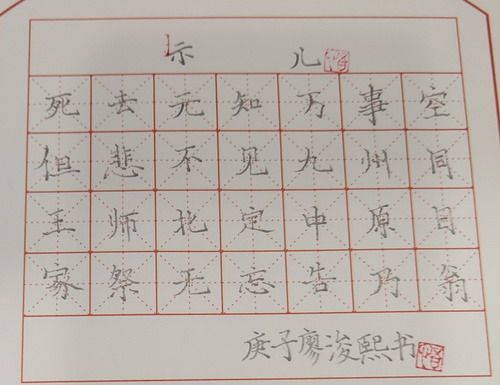 示儿
死去元知万事空
但悲不见九州同
王师北定中原日
家祭无忘告乃翁
庚子廖浚熙书